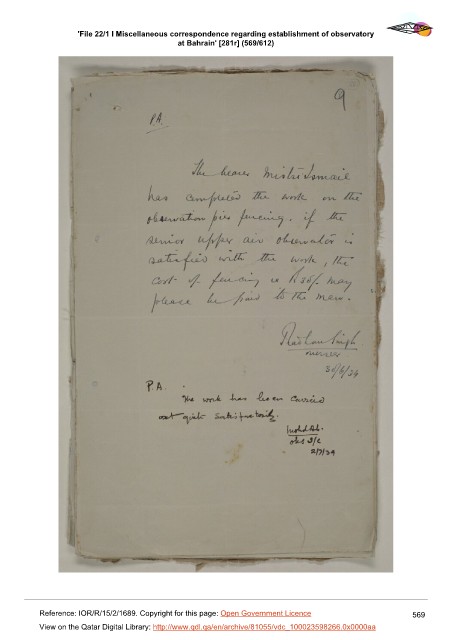 'File 22/1 I Miscellaneous correspondence regarding establishment of observatory
at Bahrain' [281r] (569/612)
9
P.A.
The bearer Mistri Ismail
has completed the work on the
observation pier fencing. if the
senior upper air observator is
satisfied with the work, the
cost of fencing is Rs 30/- may
please be paid to the man.
Singh
overseer
30/6/34
P.A.
The work has been carried
out quite satisfactorily.
Mohd Ali.
obs I/C
2/7/34
Reference: IOR/R/15/2/1689. Copyright for this page: Open Government Licence
569
View on the Qatar Digital Library: http://www.qdl.qa/en/archive/81055/vdc_100023598266.0x0000aa